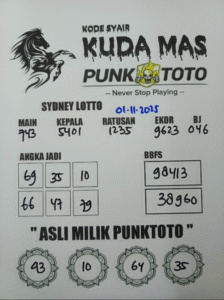 KODE SYAIR
KUDA MAS
PUNK TOTO
– Never Stop Playing –
SYDNEY LOTTO 01-11-2025
MAIN KEPALA RATUSAN EKOR BJ
743 5401 1235 9623 046
ANGKA JADI BBFS
69 35 10 98413
66 47 79 38960
" ASLI MILIK PUNKTOTO "
93 10 64 35